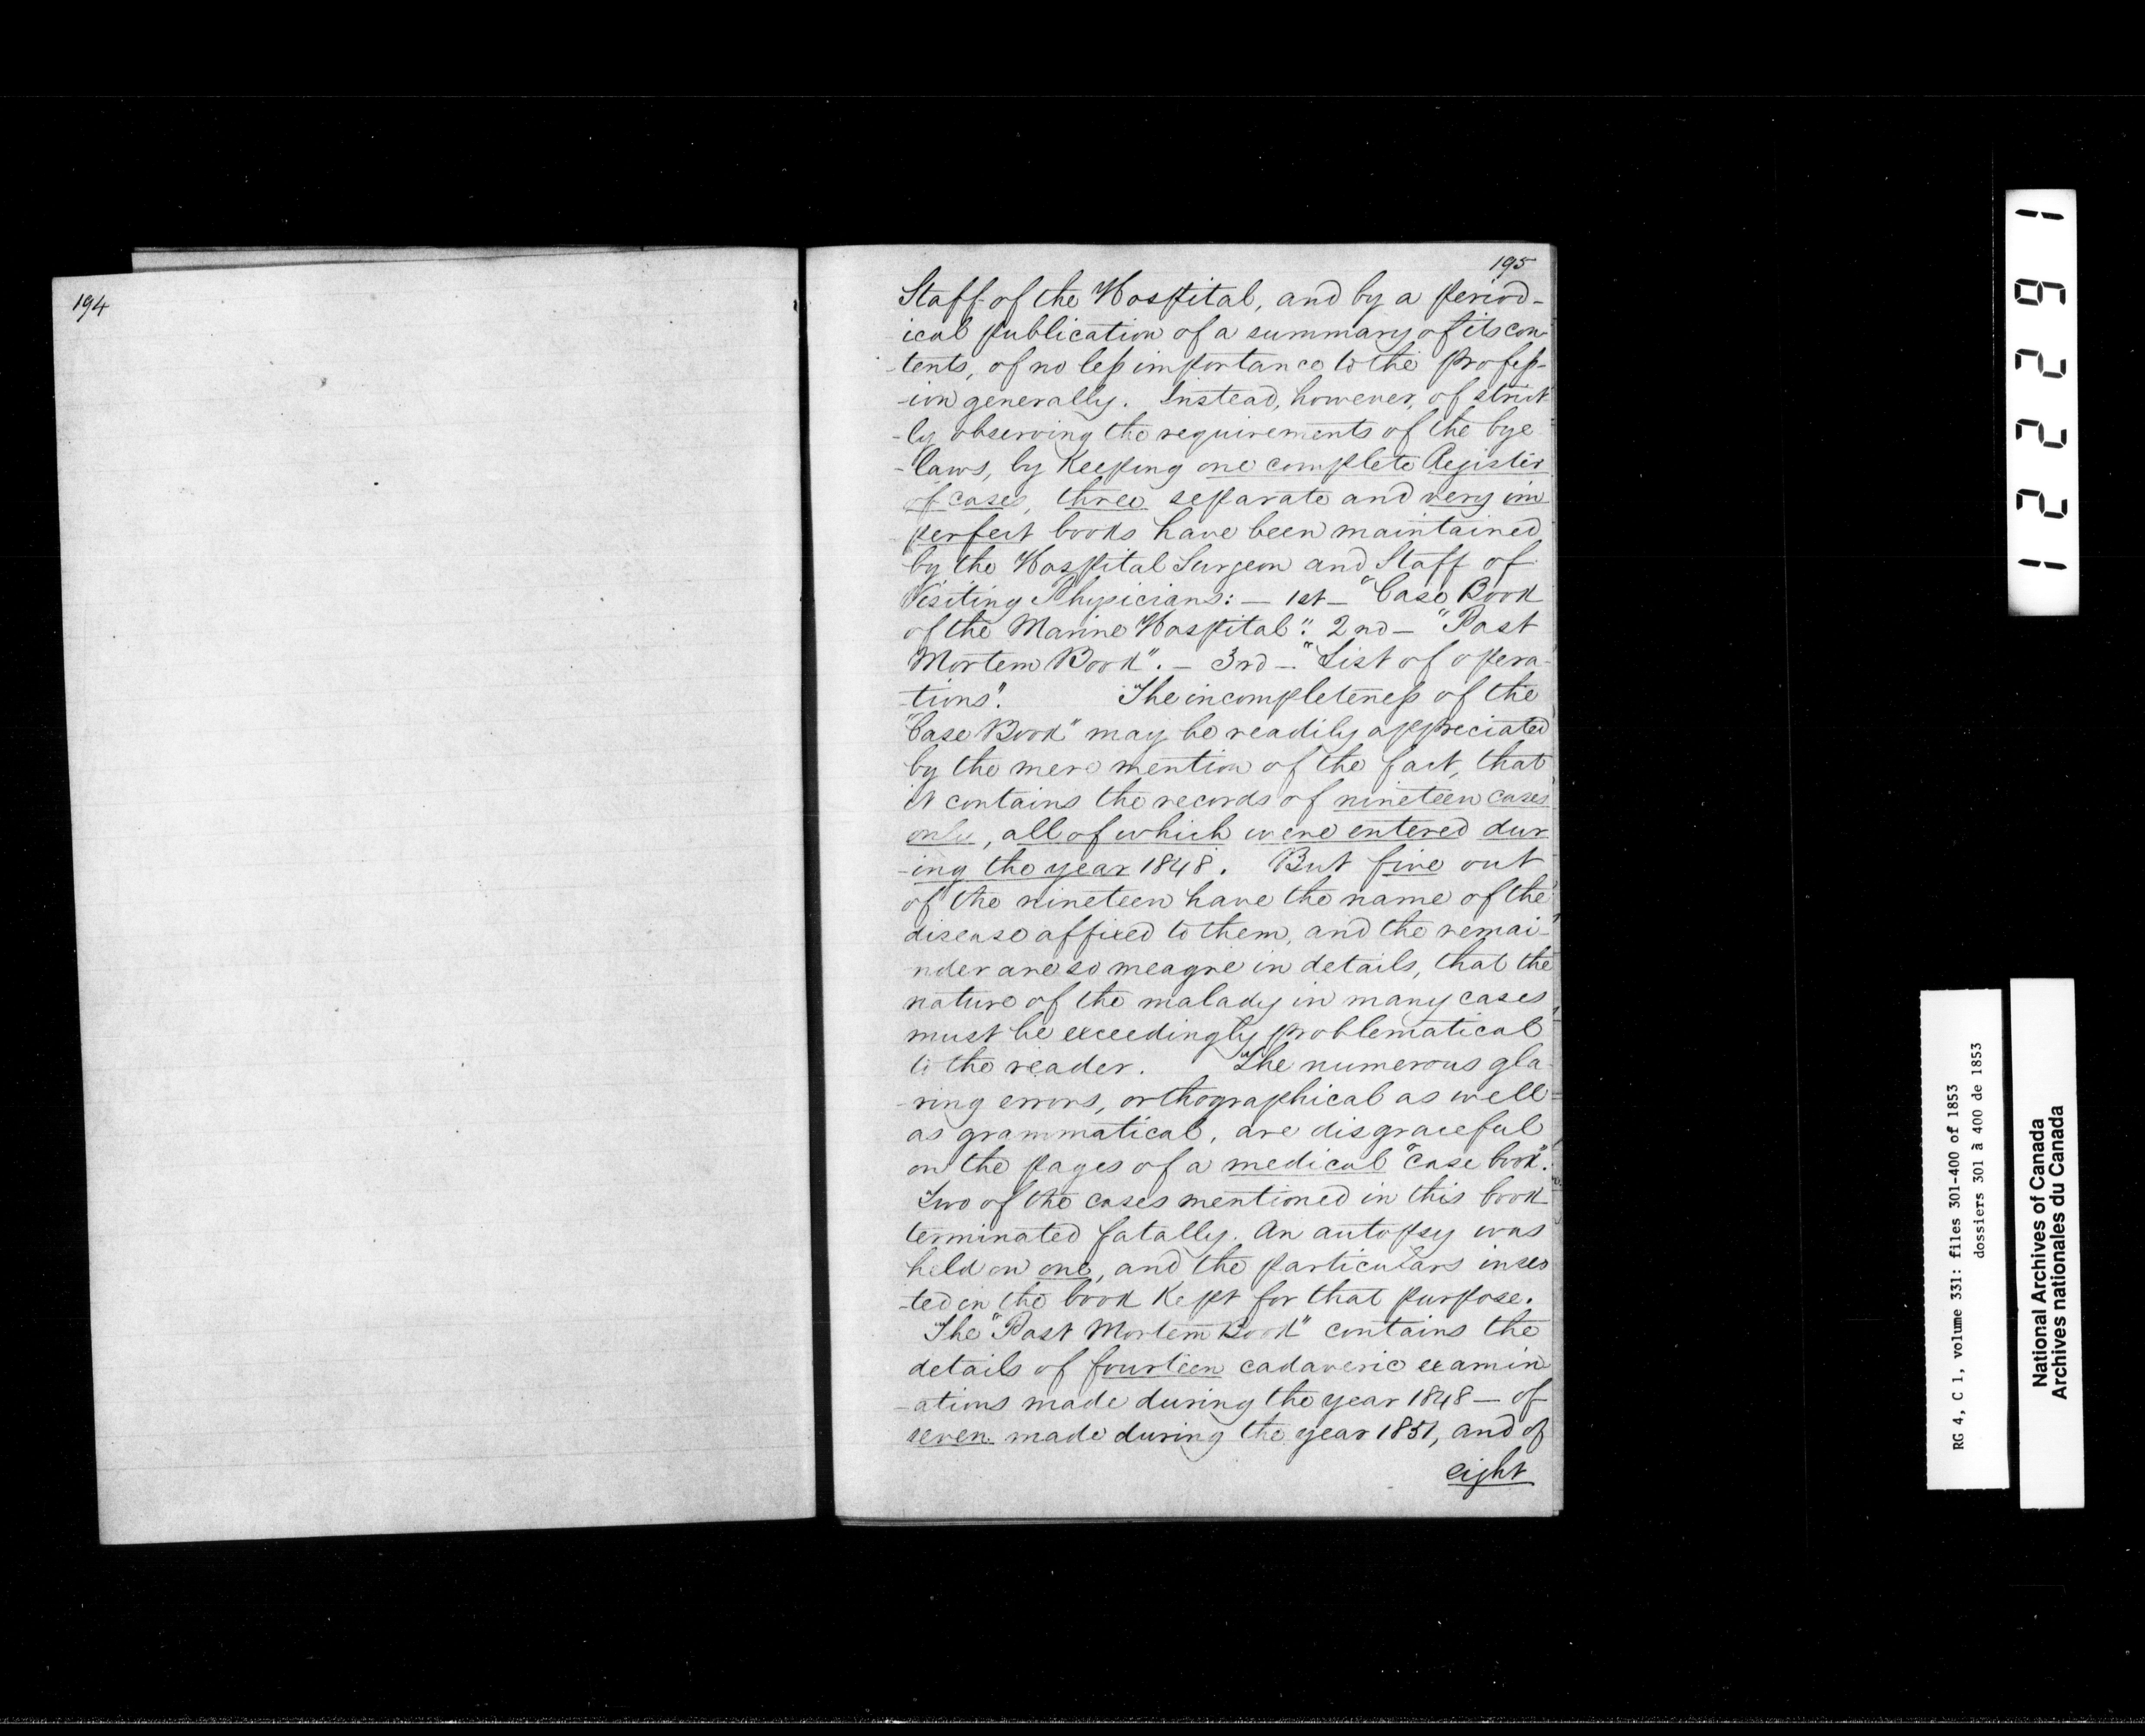 194
195
Staff of the Hospital, and by a period-
ical publication of a summary of its con-
-tents, of no less importance to the profess-
-ion generally. Instead, however, of strict
-ly observing the requirements of the bye
-laws, by Keeping one complete Register
of cases, three separate and very im
perfect books have been maintained
by the Hospital Surgeon and Staff of
Visiting Physicians: — 1st — "Case Book
of the Marine Hospital". 2nd — "Post
Mortem Book". — 3rd — "List of opera-
-tions". The incompleteness of the
"Case Book" may be readily appreciated
by the mere mention of the fact, that
it contains the records of nineteen cases
only, all of which were entered dur
-ing the year 1848. But five out
of the nineteen have the name of the
disease affixed to them, and the remai-
nder are so meagre in details, that the
nature of the malady in many cases
must be exceedingly problematical
to the reader. The numerous gla
-ring errors, orthographical as well
as grammatical, are disgraceful
on the pages of a medical "case book".
Two of the cases mentioned in this book
terminated fatally. An autopsy was
held on one, and the particulars inser
-ted in the book Kept for that purpose.
The "Post Mortem Book" contains the
details of fourteen cadaveric examin
-ations made during the year 1848 — of
seven made during the year 1851, and of
eight
122291
RG 4, C 1, volume 331: files 301-400 of 1853
dossiers 301 à 400 de 1853
National Archives of Canada
Archives nationales du Canada